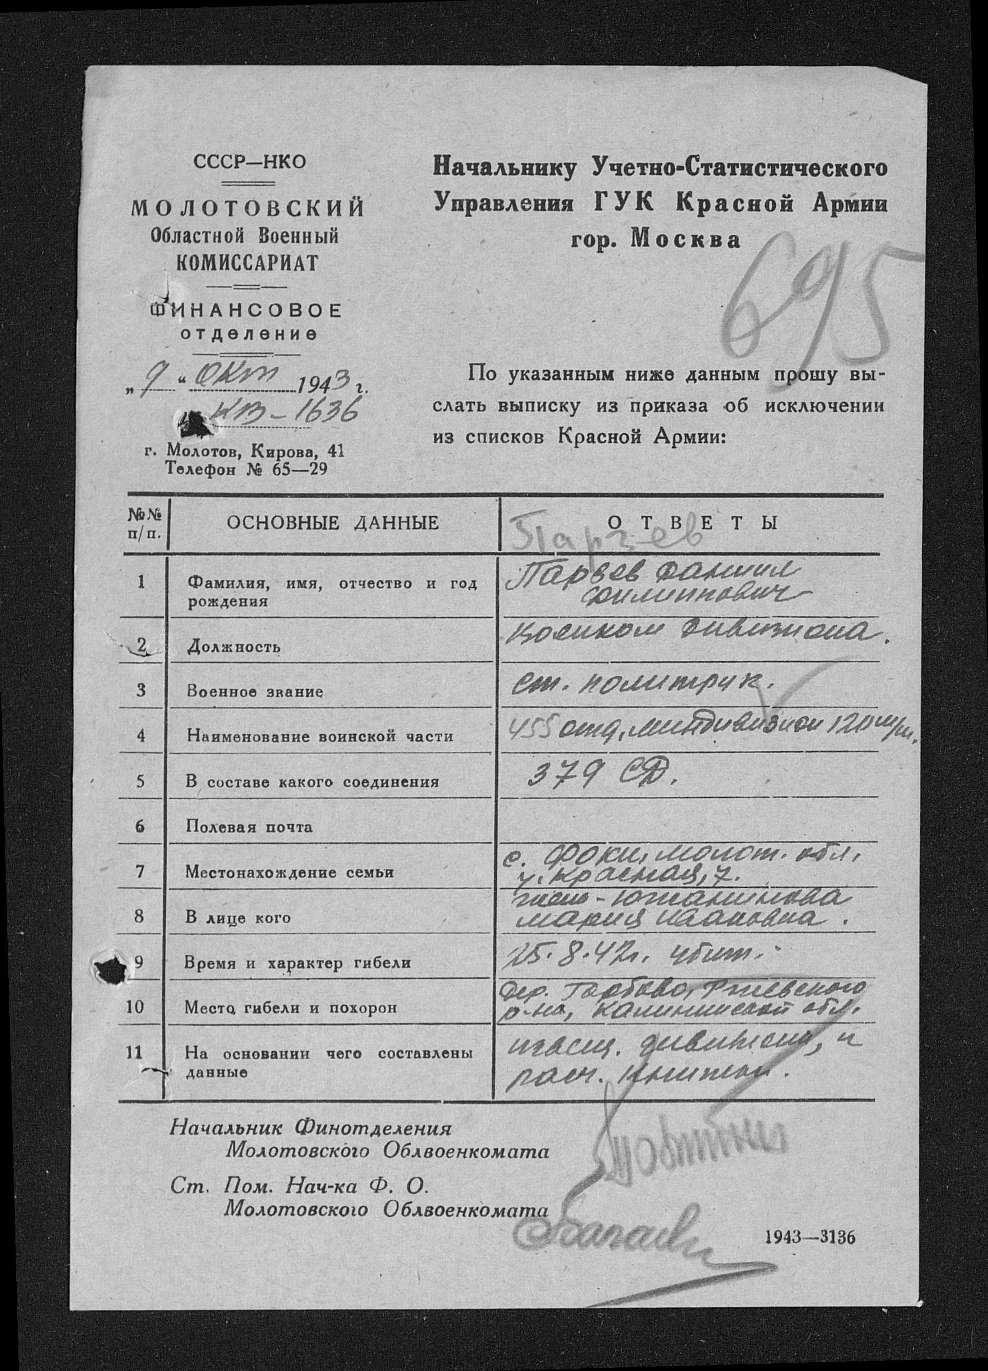 СССР—НКО
МОЛОТОВСКИЙ
Областной Военный
КОМИССАРИАТ
ФИНАНСОВОЕ
отделение
„9“ окт 1943 г.
№ КВ-1636
г. Молотов, Кирова, 41
Телефон № 65—29
Начальнику Учетно-Статистического
Управления ГУК Красной Армии
гор. Москва
695
По указанным ниже данным прошу вы-
слать выписку из приказа об исключении
из списков Красной Армии:
№№ п/п. ОСНОВНЫЕ ДАННЫЕ ОТВЕТЫ
1 Фамилия, имя, отчество и год рождения
Даниил
Филиппович
2 Должность Военком дивизиона.
3 Военное звание Ст. политрук.
4 Наименование воинской части 455 отд. миндивизион 120
5 В составе какого соединения 379 СД.
6 Полевая почта
7 Местонахождение семьи с. Фоки, Молот. обл.,
у. Красная, 7.
8 В лице кого жена - Южанинова
Мария Ивановна.
9 Время и характер гибели 25.8.42г. убит.
10 Место гибели и похорон Дер. Горбово, Ржевского
р-на, Калининской обл.
11 На основании чего составлены данные
извещ. дивизии, и
расч. книжки.
Начальник Финотделения
Молотовского Облвоенкомата
Ст. Пом. Нач-ка Ф. О.
Молотовского Облвоенкомата
1943—3136